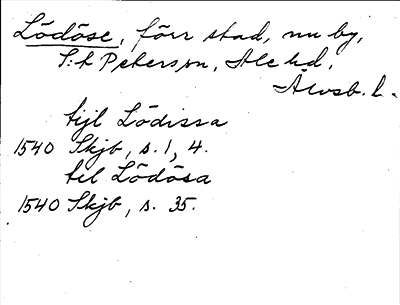 Lödöse, förr stad, nu by,
S:t Peters sn, Ale hd,
Älvsb. l.
tijl Lödissa
1540 Skjb, s. 1, 4.
til Lödösa
1540 Skjb, s. 35.